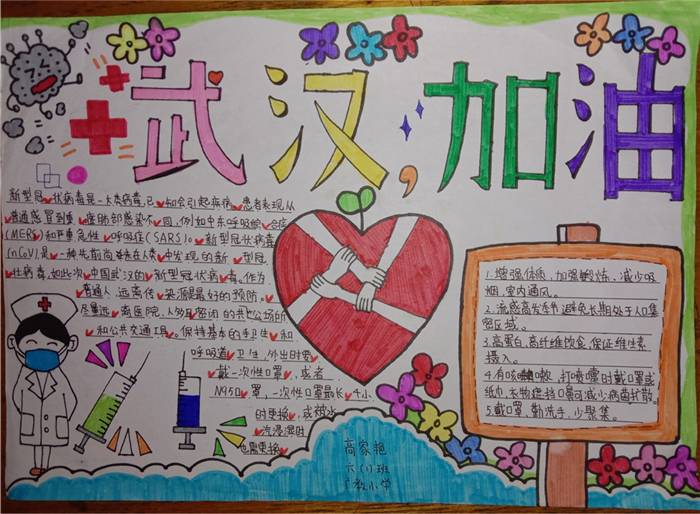 武汉,加油
新型冠状病毒是一大类病毒,已知会引起疾病,患者表现从
普通感冒到重症肺部感染不同,例如中东呼吸
(MERS)和严重急性呼吸症(SARS)。新型冠状病毒
(nCoV)是一种先前尚未在人类中发现的新型冠
状病毒,如此次中国武汉的新型冠状病毒。作为
普通人,远离传染源是最好的预防。
尽量远离医院,人物密闭的共公场所
和公共交通工具。保持基本的手卫生和
呼吸道卫生,外出时要
戴一次性口罩,或者
N95口罩,一次性口罩最长4小
时更换,或被水
汽浸湿时
也需更换
1.增强体质,加强锻炼,减少吸
烟,室内通风。
2.流感高发季节避免长期处于人口集
密区域。
3.高蛋白,高纤维饮食,保证维生素
摄入。
4.有咳嗽,打喷嚏时戴口罩或
纸巾,衣物遮挡口鼻可减少病菌扩散。
5.戴口罩,勤洗手,少聚集。
高家艳
六(1)班
小学